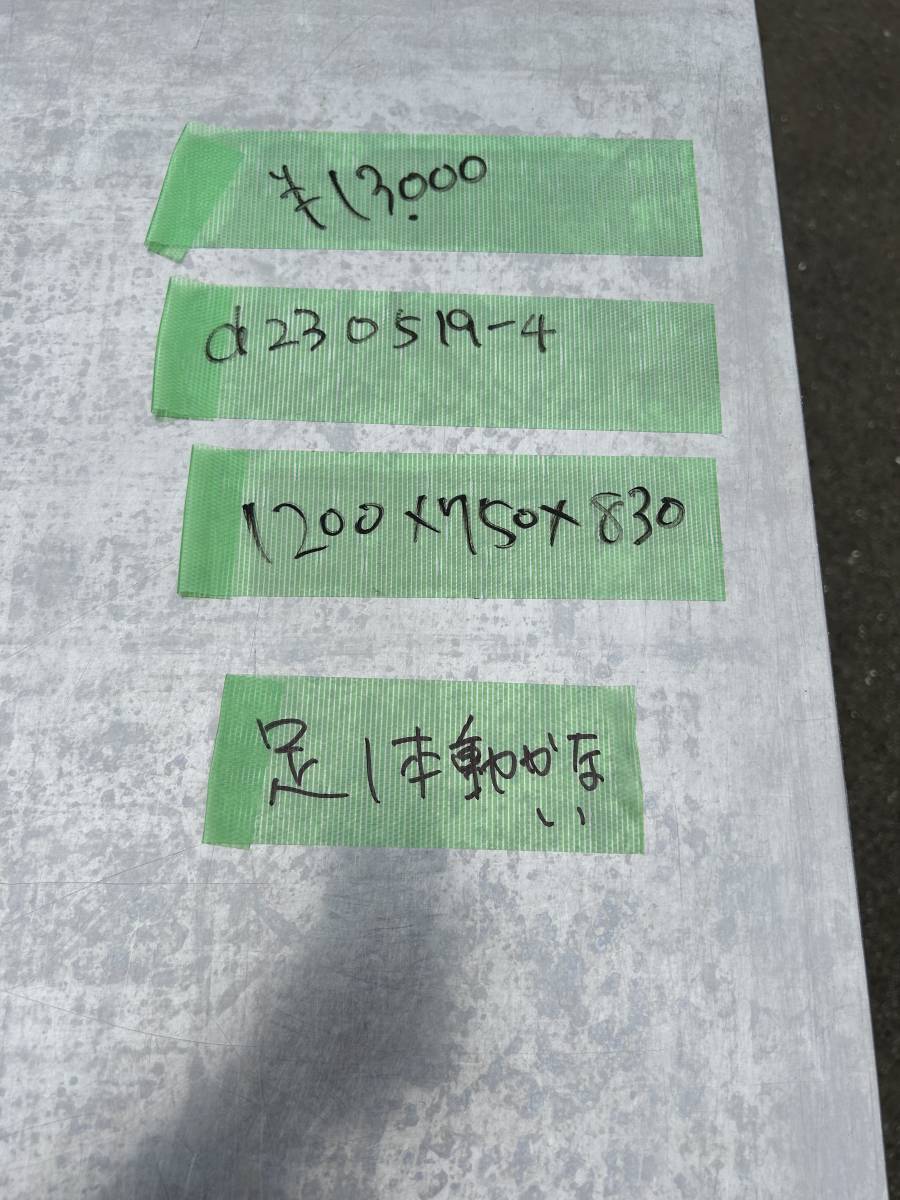 ¥13,000
d230519-4
1200×750×830
足1本動かな
い